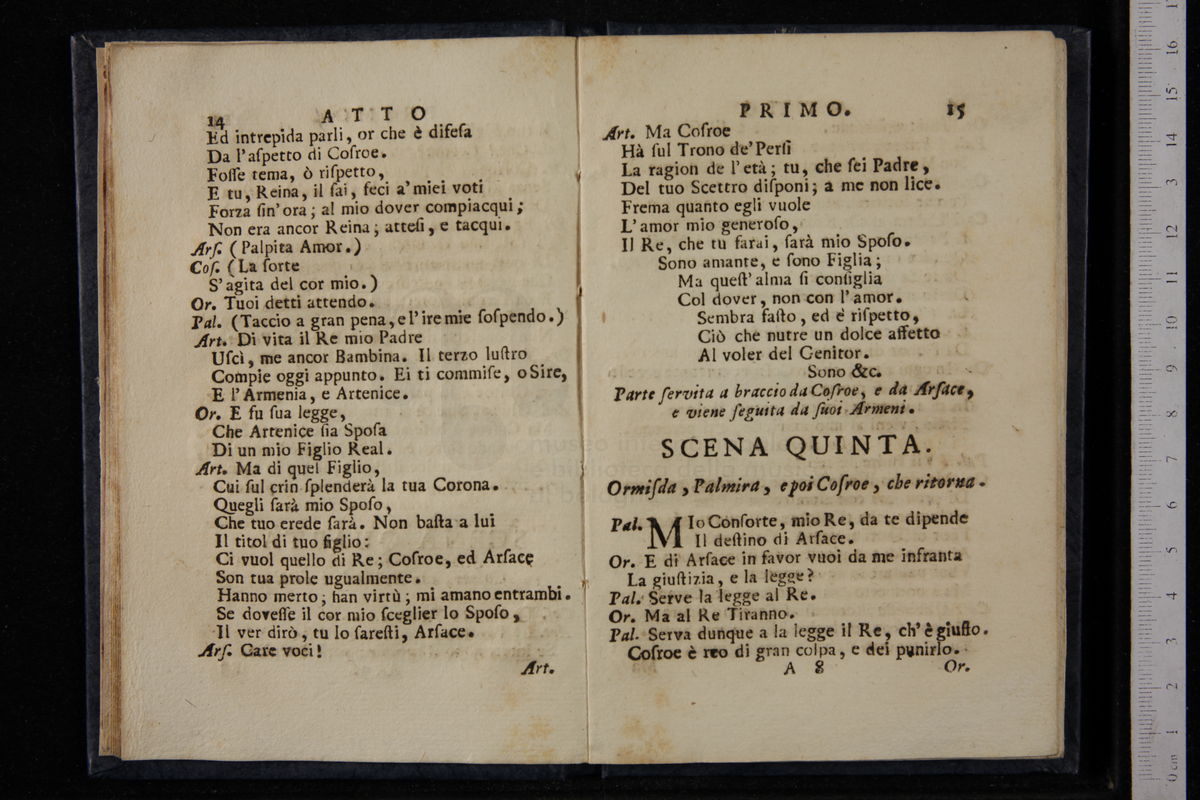 14 ATTO
Ed intrepida parli, or che è difeſa
Da l'aſpetto di Coſroe.
Foſſe tema, ò riſpetto,
E tu, Reina, il ſai, feci a' miei voti
Forza ſin' ora; al mio dover compiacqui;
Non era ancor Reina; atteſi, e tacqui.
Arſ. (Palpita Amor.)
Coſ. (La ſorte
S'agita del cor mio.)
Or. Tuoi detti attendo.
Pal. (Taccio a gran pena, e l'ire mie ſoſpendo.)
Art. Di vita il Re mio Padre
Uſcì, me ancor Bambina. Il terzo luſtro
Compie oggi appunto. Ei ti commiſe, o Sire,
E l'Armenia, e Artenice.
Or. E fu ſua legge,
Che Artenice ſia Spoſa
Di un mio Figlio Real.
Art. Ma di quel Figlio,
Cui ſul crin ſplenderà la tua Corona.
Quegli ſarà mio Spoſo,
Che tuo erede ſarà. Non baſta a lui
Il titol di tuo figlio:
Ci vuol quello di Re; Coſroe, ed Arſace
Son tua prole ugualmente.
Hanno merto; han virtù; mi amano entrambi.
Se doveſſe il cor mio ſceglier lo Spoſo,
Il ver dirò, tu lo ſareſti, Arſace.
Arſ. Care voci!
Art.
PRIMO. 15
Art. Ma Coſroe
Hà ſul Trono de' Perſi
La ragion de l'età; tu, che ſei Padre,
Del tuo Scettro diſponi; a me non lice.
Frema quanto egli vuole
L'amor mio generoſo,
Il Re, che tu farai, ſarà mio Spoſo.
Sono amante, e ſono Figlia;
Ma queſt' alma ſi conſiglia
Col dover, non con l'amor.
Sembra faſto, ed è riſpetto,
Ciò che nutre un dolce affetto
Al voler del Genitor.
Sono &c.
Parte ſervita a braccio da Coſroe, e da Arſace,
e viene ſeguita da ſuoi Armeni.
SCENA QUINTA.
Ormiſda, Palmira, e poi Coſroe, che ritorna.
Pal. MIo Conſorte, mio Re, da te dipende
Il deſtino di Arſace.
Or. E di Arſace in favor vuoi da me infranta
La giuſtizia, e la legge?
Pal. Serve la legge al Re.
Or. Ma al Re Tiranno.
Pal. Serva dunque a la legge il Re, ch' è giuſto.
Coſroe è reo di gran colpa, e dei punirlo.
A 8 Or.